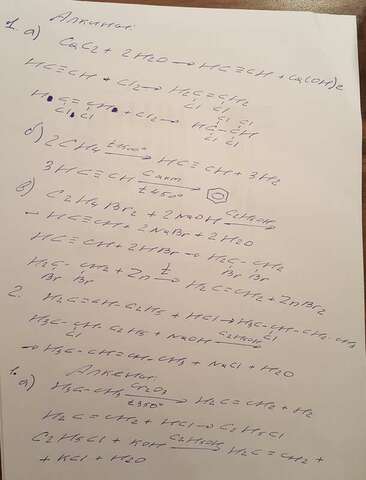 Алкины.
1. а)
CaC2 + 2H2O → HC≡CH + Ca(OH)2
HC≡CH + Cl2 → H2C=CH2
Cl Cl
HC=CH + Cl2 → HC-CH
Cl Cl
Cl Cl
Cl Cl
б) 2CH4 t1500° → HC≡CH + 3H2
3HC≡CH Cакт t450° →
в) C2H4Br2 + 2NaOH C2H5OH →
→ HC≡CH + 2NaBr + 2H2O
HC≡CH + 2HBr → H2C-CH2
Br Br
H2C-CH2 + Zn t → H2C=CH2 + ZnBr2
Br Br
2. H2C=CH-C2H5 + HCl → H3C-CH-CH2-CH3
Cl
H3C-CH-C2H5 + NaOH C2H5OH →
Cl
→ H3C-CH=CH-CH3 + NaCl + H2O
Алкены.
1. а) H3C-CH3 Cr2O3 t350° → H2C=CH2 + H2
H2C=CH2 + HCl → C2H5Cl
C2H5Cl + KOH C2H5OH → H2C=CH2 +
+ KCl + H2O